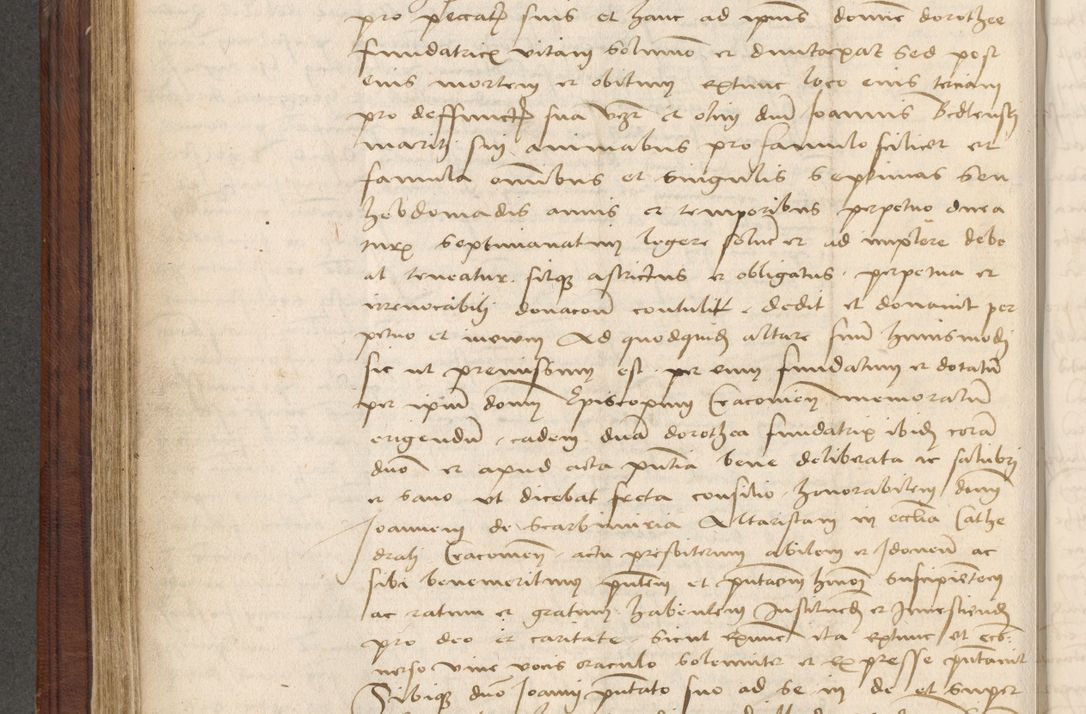 pro peccatis suis et hanc ad ipius domine dorothee
fundatricis vitam solummo et dumtaxat Sed post
eius mortem et obitum extunc loco eius terciam
pro deffunctis sua vcz et olim dni Joannis
mariti sui animabus pro famulo scilicet et
famula omnibus et singulis septimas seu
hebdomadis annis et temporibus perpetuo dura
turis septimanatim legere soluere et ad implere debe
at teneatur sitque astrictus et obligatus perpetua et
irreuocabili donacone contulit dedit et donauit per
petuo et in eum Ad quodquidem altare sicut huiusmodi
sic ut premissum est per eum fundatum et dotatum
per ipium domin Episcopum Cracouien memoratum
erigendum eadem dna dorothea fundatrix ibidem coram
dno et apud acta pntia bene deliberata ac salubri
et sano ut dicebat freta consilio honorabilem dnm
Joannem de Scarbimiria Altaristam in ecclia Cathe
drali Cracouien actu presbiterum abilem et Idoneum ac
sibi benemeritum pntem et pntacem hmoi suscipientem
ac ratum et gratum habentem Instituendum et Inuestiendum
pro deo et caritate sicut extunc ita extunc et eco
nerso viue vocis oraculo solemniter et expresse pntauit
Sibique dno Joanni pntato suo ad se in de et super